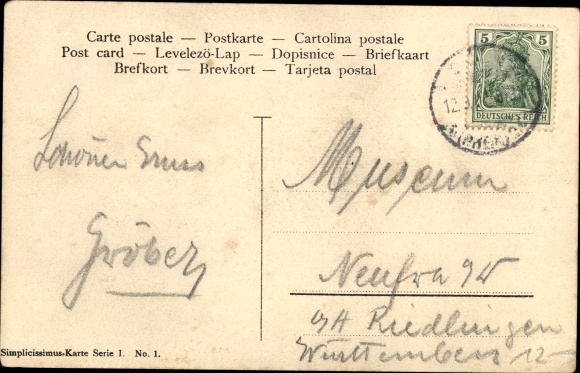 Carte postale — Postkarte — Cartolina postale
Post card — Levelezö-Lap — Dopisnice — Briefkaart
Brefkort — Brevkort — Tarjeta postal
5 5
DEUTSCHES REICH
12.
Schönen Gruss
Gröber
Museum
Neufra
Riedlingen
Württemberg
Simplicissimus-Karte Serie I. No. 1.